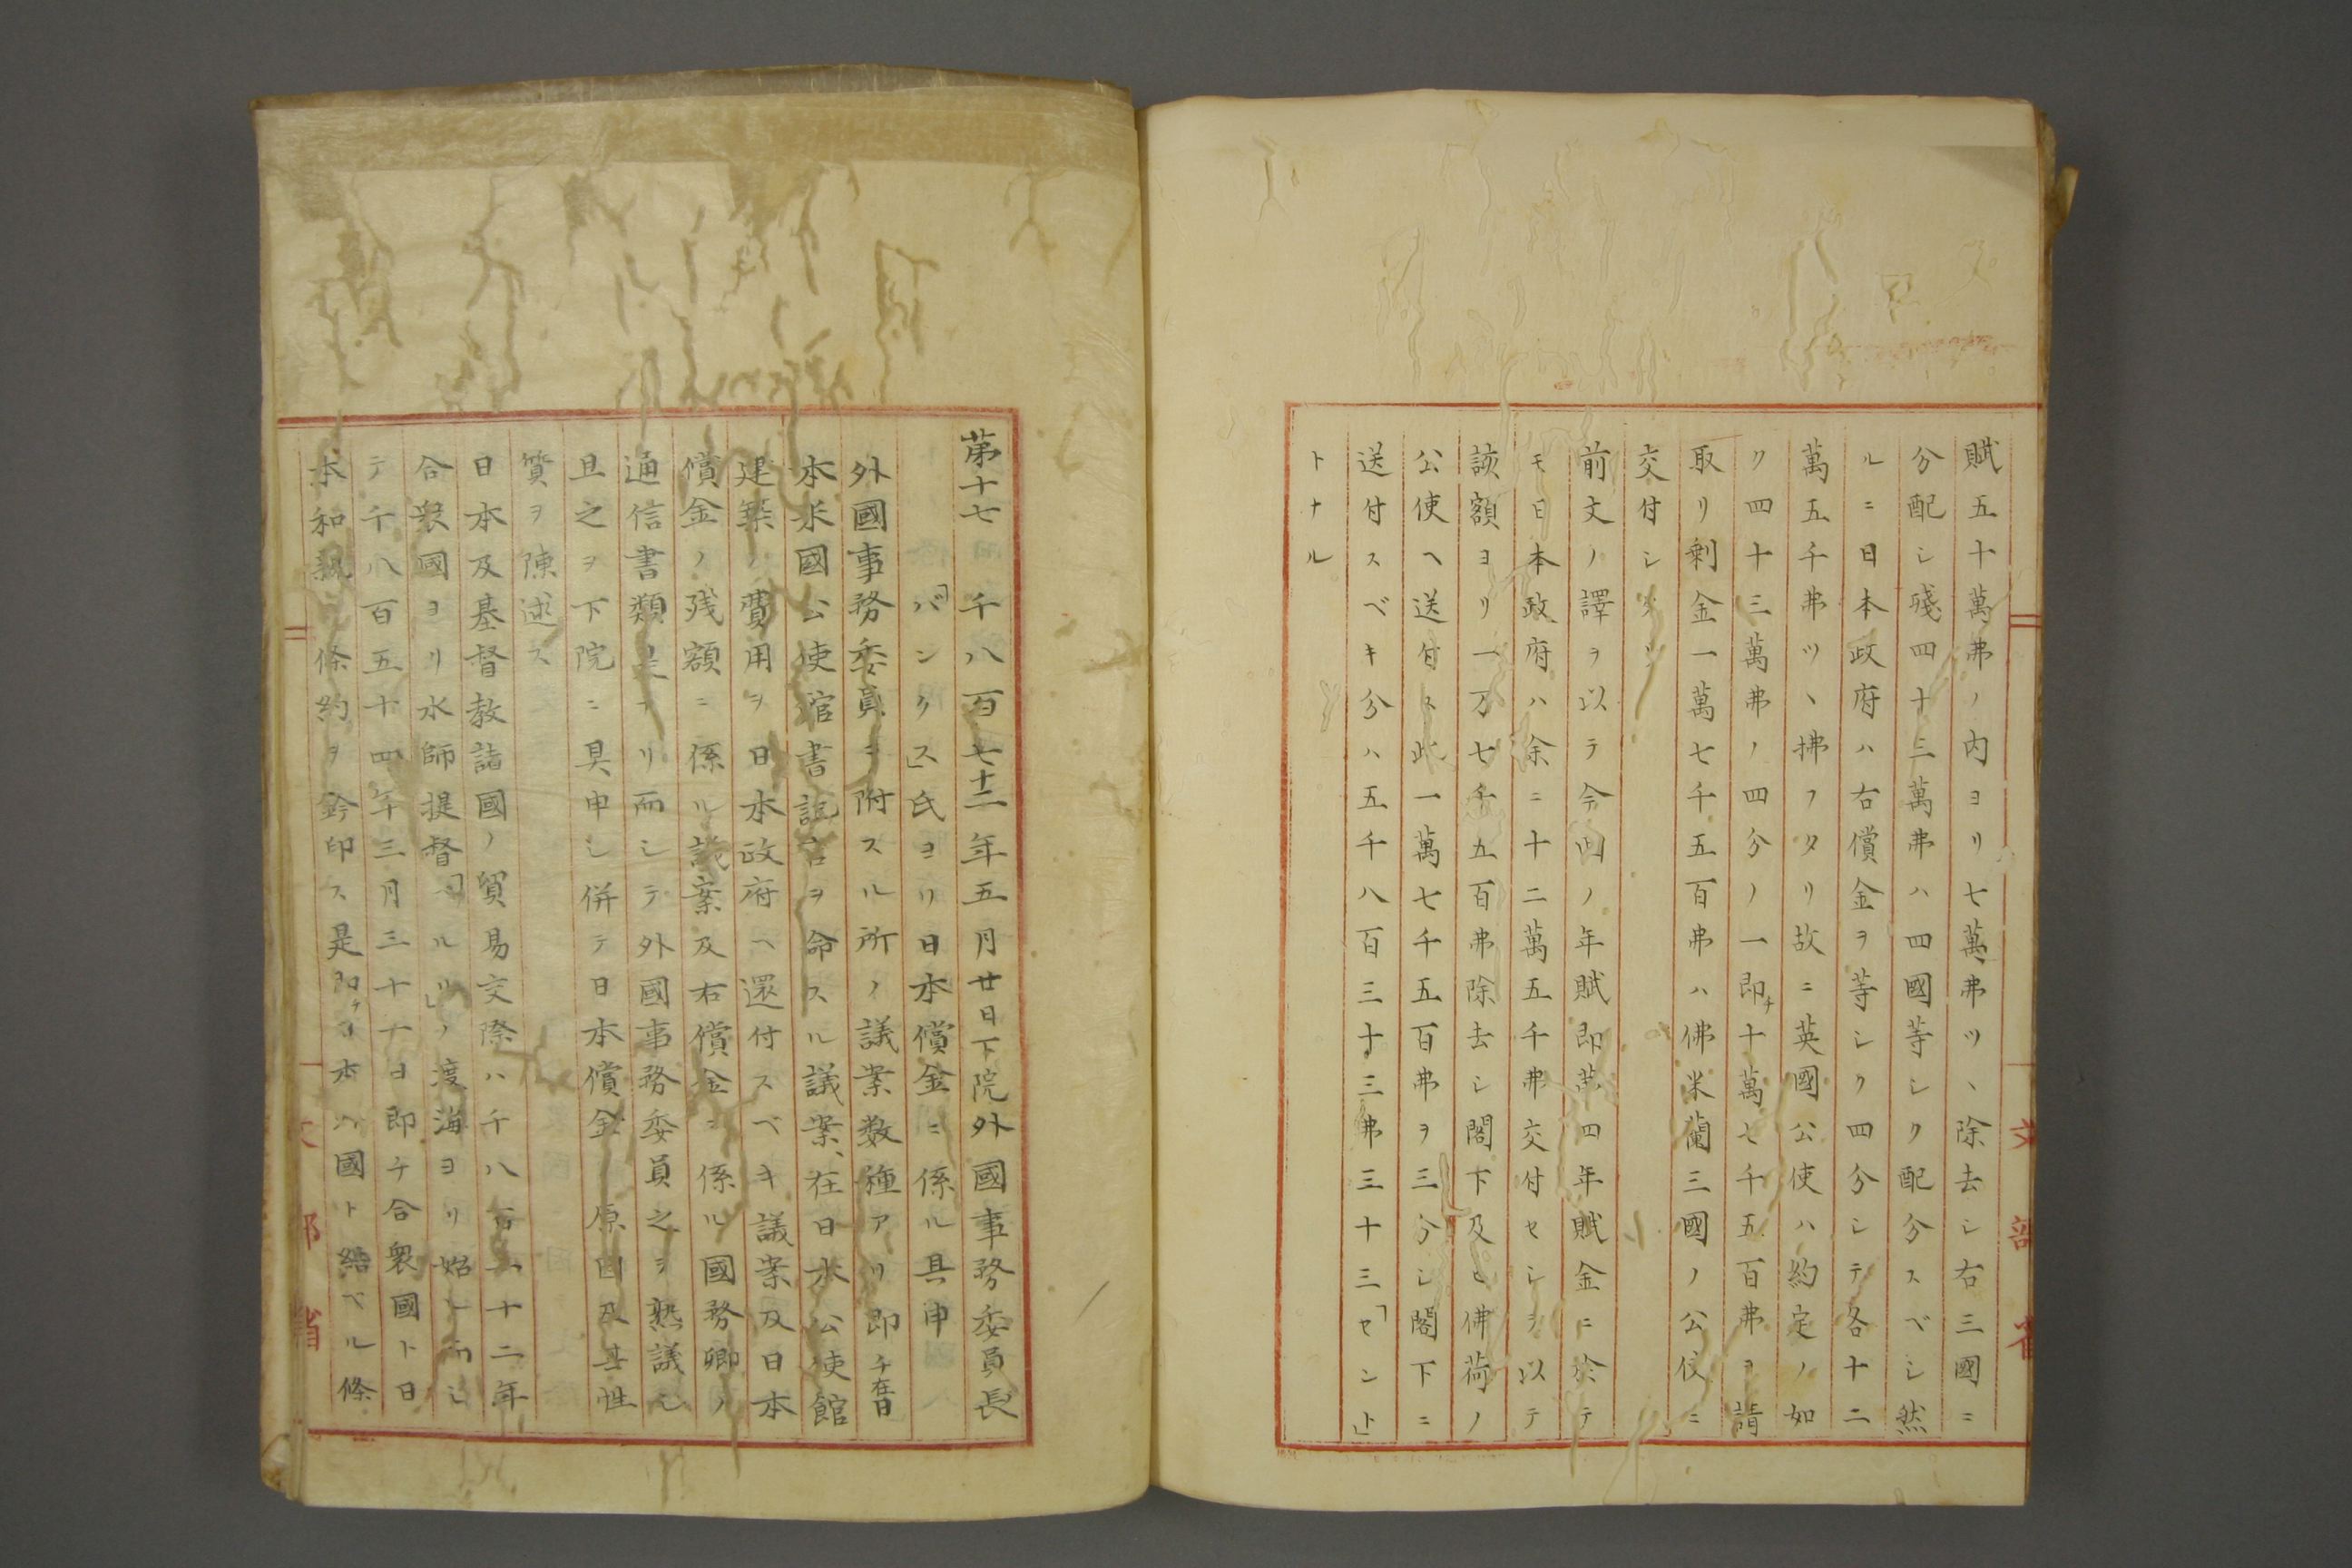 賦五十萬弗ノ内ヨリ七萬弗ツヽ除去シ右三國ニ
分配シ殘四十三萬弗ハ四國等シク配分スベシ然
ルニ日本政府ハ右償金ヲ等シク四分シテ各十二
萬五千弗ツヽ拂フタリ故ニ英國公使ハ約定ノ如
ク四十三萬弗ノ四分ノ一即チ十萬七千五百弗ヲ請
取リ剰金一萬七千五百弗ハ佛米蘭三國ノ公使ニ
交付シタリ
前文ノ譯ヲ以テ今回ノ年賦即第四年賦金ニ於テ
モ日本政府ハ余ニ十二萬五千弗交付セシヲ以テ
該額ヨリ一万七千五百弗除去シ閣下及ヒ佛荷ノ
公使ヘ送付ス此一萬七千五百弗ヲ三分シ閣下ニ
送付スベキ分ハ五千八百三十三弗三十三「セント」
トナル
文部省
第十七 千八百七十二年五月廿日下院外國事務委員長
「バンクス」氏ヨリ日本償金ニ係ル具申
外國事務委員ヲ附スル所ノ議案数種アリ即チ在日
本米國公使館書記官ヲ命スル議案、在日米公使館
建築ノ費用ヲ日本政府ヘ還付スベキ議案及日本
償金ノ残額ニ係ル議案及右償金ニ係ル國務卿ノ
通信書類是ナリ而シテ外國事務委員之ヲ熟議シ
且之ヲ下院ニ具申シ併テ日本償金ノ原因及其性
質ヲ陳述ス
日本及基督教諸國ノ貿易交際ハ千八百五十二年
合衆國ヨリ水師提督「ペルリ」ノ渡海ヨリ始レリ而シ
テ千八百五十四年三月三十一日即チ合衆國ト日
本和親條約ヲ鈴印ス是即チ日本ハ國ト結ベル條
文部省